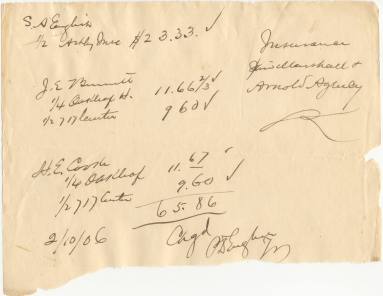 S. A. English
1/2 Ashby Inse $23.33. ✓
Insurance
Marshall &
Arnold Agency
J. E. Burnett
1/4 Oakleaf H. 11.66 2/3 ✓
1/2 717 Center 9 60 ✓
H. E. Cook
1/4 Oakleaf 11.67 ✓
1/2 717 Center 9.60 ✓
65.86
2/10/06
Chgd